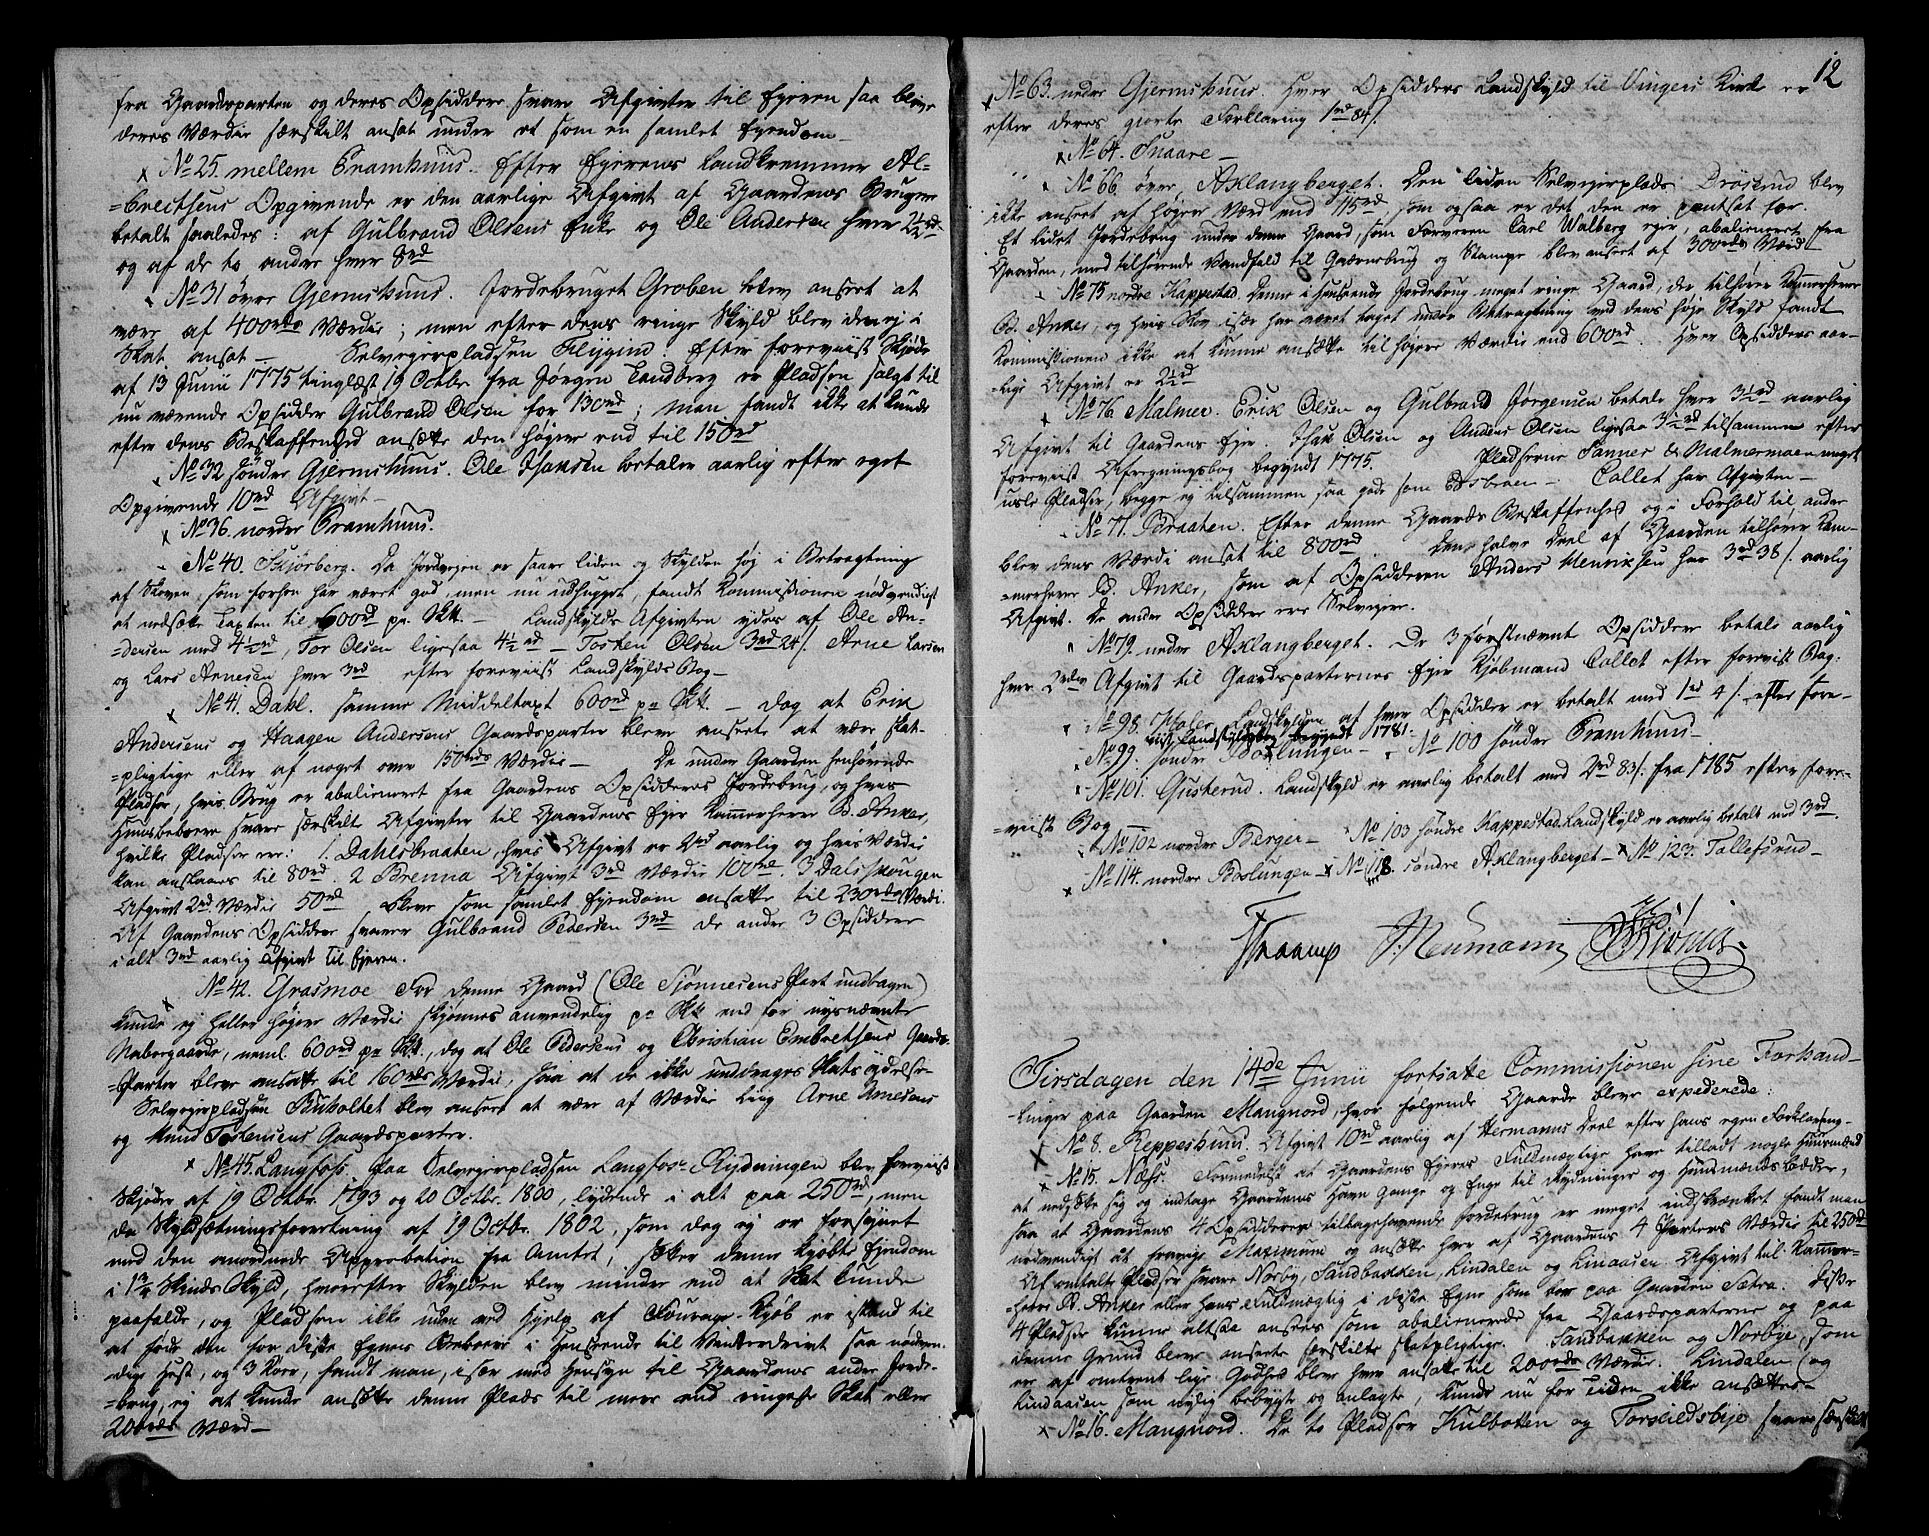 fra Gaardsparten og deres Opsiddere svare Afgivter til Ejeren saa bleve
deres Værdie særskilt ansat under et som en samlet Ejendom –
x No 25. mellem Bramhuus. Efter Ejerens Landkræmmer Al=
=brectsens Opgivende er den aarlige Afgivt af Gaardens Bruger
betalt saaledes: af Gulbrand Olsens Enke og Ole Andersen hver 2½ rd
og af de to andre hver 8 rd
No 31 øvre Gjermshuus. Jordebruget Groben blev anseet at
være af 400 rds Værdie; men efter dens ringe Skyld blev den ej i
Skat ansat – Selvejerpladsen Flygind. Efter foreviist Skjøde
af 13 Junii 1775 tinglæst 19 Octbr. fra Jørgen Tandberg er Pladsen solgt til
nu værende Opsidder Gulbrand Olsen for 130 rd; man fandt ikke at kunde
efter dens Beskaffenhed ansætte den højere end til 150 rd
x No 32 søndre Gjermshuus. Ole Isaksen betaler aarlig efter eget
Opgivende 10 rd Afgivt –
x No 36. nordre Bramhuus.
No 40. Skjørberg. Da Jordvejen er saare liden og Skylden høj i Betragtning
af Skoven som forhen har været god, men nu udhugget, fandt Kommissionen nødvendigt
at nedsætte Taxten til 600 rd pr. Skt. – Landskylds Afgivten ydes af Ole An=
=dersen med 4½ rd, Tor Olsen ligesaa 4½ rd – Tosten Olsen 3 rd 24 s. Arne Larsen
og Lars Arnesen hver 3 rd efter foreviist Landskylds Bog –
x No 41. Dahl. samme Middeltaxt 600 rd pr Skt. – dog at Erik
Andersens og Haagen Andersens Gaardsparter bleve ansette at være skat=
=pligtige eller af noget over 150 rds Værdie – De under Gaarden henhørende
Pladser, hvis Brug er abalieneret fra Gaardens Opsidderes Jordebrug, og hvis
Huusbeboere svare særskilte Afgivter til Gaardens Ejer Kammerherre B. Anker,
hvilke Pladser ere: 1. Dahlsbraaten, hvis Afgivt er 2 rd aarlig og hvis Værdie
kan anslaaes til 80 rd. 2 Brenna Afgivt 3 rd Værdie 100 rd. 3 Dalsskougen
Afgivt 2 rd Værdie 50 rd, bleve som samlet Ejendom ansatte til 230 rds Værdi.
Af Gaardens Opsiddere svarer Gulbrand Pedersen 3 rd de andre 3 Opsiddere
i alt 3 rd aarlig Afgivt til Ejeren.
x No 42. Grasmoe For denne Gaard (Ole Tjønnesens Part undtagen)
kunde ej heller højere Værdie skjønnes anvendelig pr Skt end for nysnævnte
Nabogaarde, neml. 600 rd pr Skt., dog at Ole Pedersens og Christian Embretsens Gaards=
=Parter bleve ansatte til 160 rds Værdie, saa at de ikke unddrages Skats Ydelse –
Selvejerpladsen Buholtet blev anseet at være af Værdie Liig Arne Arnesens
og Mund Tostensens Gaardsparter.
x No 45. Langfoss. paa Selvejerpladsen Langfoss-Rydningen blev foreviist
Skjøder af 19 Octbr. 1793 og 20 Octbr. 1800, lydende i alt paa 250 rd, men
da Skyldsætningsforretning af 19 Octbr. 1802, som dog ej er forsynet
med den anordnede Approbation fra Amtet, sætter denne kjøbte Ejendom
i Skinds Skyld, hvorefter Skylden blev mindre end at Skat kunde
paafalde, og Pladsen ikke uden ved Hjelp af Fourage-Kjøb er istand til
at føde den for disse Egnes Beboere i Henseende til Vinterdrivt saa nødven-
dige Hest, og 3 Kører, fandt man, især med Hensyn til Gaardens andre Jorde=
=brug, ej at kunde ansætte denne Plads til mere end ringeste Skat eller
200 rds Værd –
12
x No 63. nedre Gjermshuus. Hver Opsidders Landskyld til Vingers Kirke er
efter deres gjorte Forklaring 1 rd 84 s.
x No 64. Snaare –
No 66 øvre Aklangberget. Den liden Selvejerplads Drøsrud blev
ikke anseet af højere Værd end 115 rd, som ogsaa er det den er pantsat for.
Et lidet Jordebrug under denne Gaard, som Farveren Carl Walberg ejer, abalieneret fra
Gaarden, med tilhørende Vandfald til Gaarnsbrug og Stampe blev anseet af 300 rds Værd.
No 75 nordre Kappestad. Denne i Henseende Jordebrug meget ringe Gaard, der tilhører Kammerherre
B. Anker, og hvis Skov især har været taget under Betragtning ved dens høje Skyld fandt
Kommissionen ikke at kunne ansætte til højere Værdie end 600 rd. Hver Opsidders aar=
=lige Afgivt er 2½ rd
No 76 Malmer. Erik Olsen og Gulbrand Jørgensen betale hver 3½ rd aarlig
Afgivt til Gaardens Ejer. Isak Olsen og Anders Olsen ligesaa 3½ rd tilsammen efter
foreviist Afregningsbog begyndt 1775. Pladserne Sanner & Malmermoen meget
usle Pladser, begge ej tilsammen saa gode som Edsbraen – Collet har Afgivten –
No 77. Braaten. Efter denne Gaards Beskaffenhed og i Forhold til andre
blev dens Værdi ansat til 800 rd. Den halve Deel af Gaarden tilhører Kam=
=merherre B. Anker, som af Opsidderen Anders Henriksen har 3 rd 38 s. aarlig
Afgivt. De andre Opsiddere ere Selvejere.
No 79. nedre Aklangberget. De 3 førstnævnte Opsiddere betale aarlig
hver 2 rdlr Afgivt til Gaardsparternes Ejer Kjøbmand Collet efter foreviist Bog.
No 98. Landskylden af hver Opsidder er betalt med 1 rd 4 s. efter fore-
viist Landskyldbog begyndt 1781.
No 99 søndre Børlungen – No 100 søndre Bramhuus –
No 101. Gusterud. Landskyld er aarlig betalt med 2 rd 83 s. fra 1785 efter fore-
=viist Bog –
No 102 nordre Berger – No 103 søndre Kappestad Landskyld er aarlig betalt med 3 rd.
x No 114. nordre Børlungen – x No 118. søndre Aklangberget – x No 123. Tallefsrud –
Thaarup J. Neumann
Tirsdagen den 14de Junii fortsatte Commissionen sine Forhand=
linger paa Gaarden Mangnord, hvor følgende Gaarde bleve expederede:
x No 8. Reppeshuus. Afgivt 10 rd aarlig af Hermanns Deel efter hans egen Forklaring –
x No 15. Næfs. Formedelst at Gaardens Ejeres Fuldmægtige have tilladt nogle Huusmænd
at nedsætte sig og indtage Gaardens Havne Gange og Enge til Rydninger og Huusmænds Bedder,
saa at Gaardens 4 Opsidderes tilbagehavende Jordebrug er meget indskrænket fandt man
nødvendigt at fravige Maximum og ansætte hver af Gaardens 4 Parters Værdie til 250 rd
Af omtalte Pladser svare Norby, Sandbakken, Lindalen og Linaasen Afgivt til Kammer=
=herre B. Anker eller hans Fuldmægtig i disse Egne som boe paa Gaarden Sætra. Disse
4 Pladser kunne altsaa ansees som abalienerede fra Gaardsparterne og paa
denne Grund bleve ansette særskilte skatpligtige. Sandbakken og Norbye, som
er af omtrent lige Godhed blev hver ansatte til 200 rds Værdie. Lindalen og
Lindaasen som nylig bebygte og anlagte, kunde nu for Tiden ikke ansættes –
x No 16. Mangnord. De to Pladser Kulbotten og Torskildsbye svare særskilt